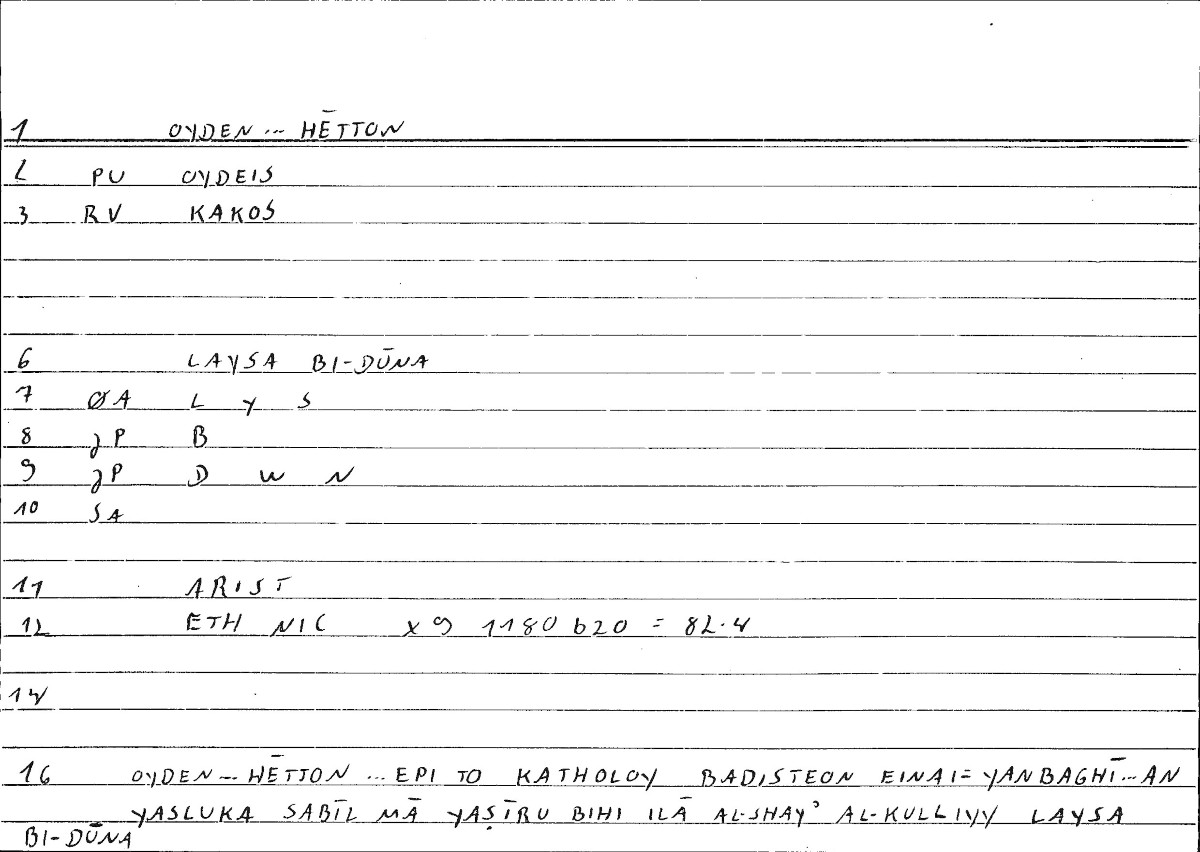 1 OYDEN ... HĒTTON
2 PU OYDEIS
3 RV KAKOS
6 LAYSA BI-DŪNA
7 ØA L Y S
8 JP B
9 JP D W N
10 SA
11 ARIST
12 ETH NIC X 9 1180 b20 = 82.4
14
16 OYDEN ... HĒTTON ... EPI TO KATHOLOY BADISTEON EINAI = YANBAGHĪ ... AN
YASLUKA SABĪL MĀ YAṢĪRU BIHI ILĀ AL-SHAYʾ AL-KULLIYY LAYSA
BI-DŪNA